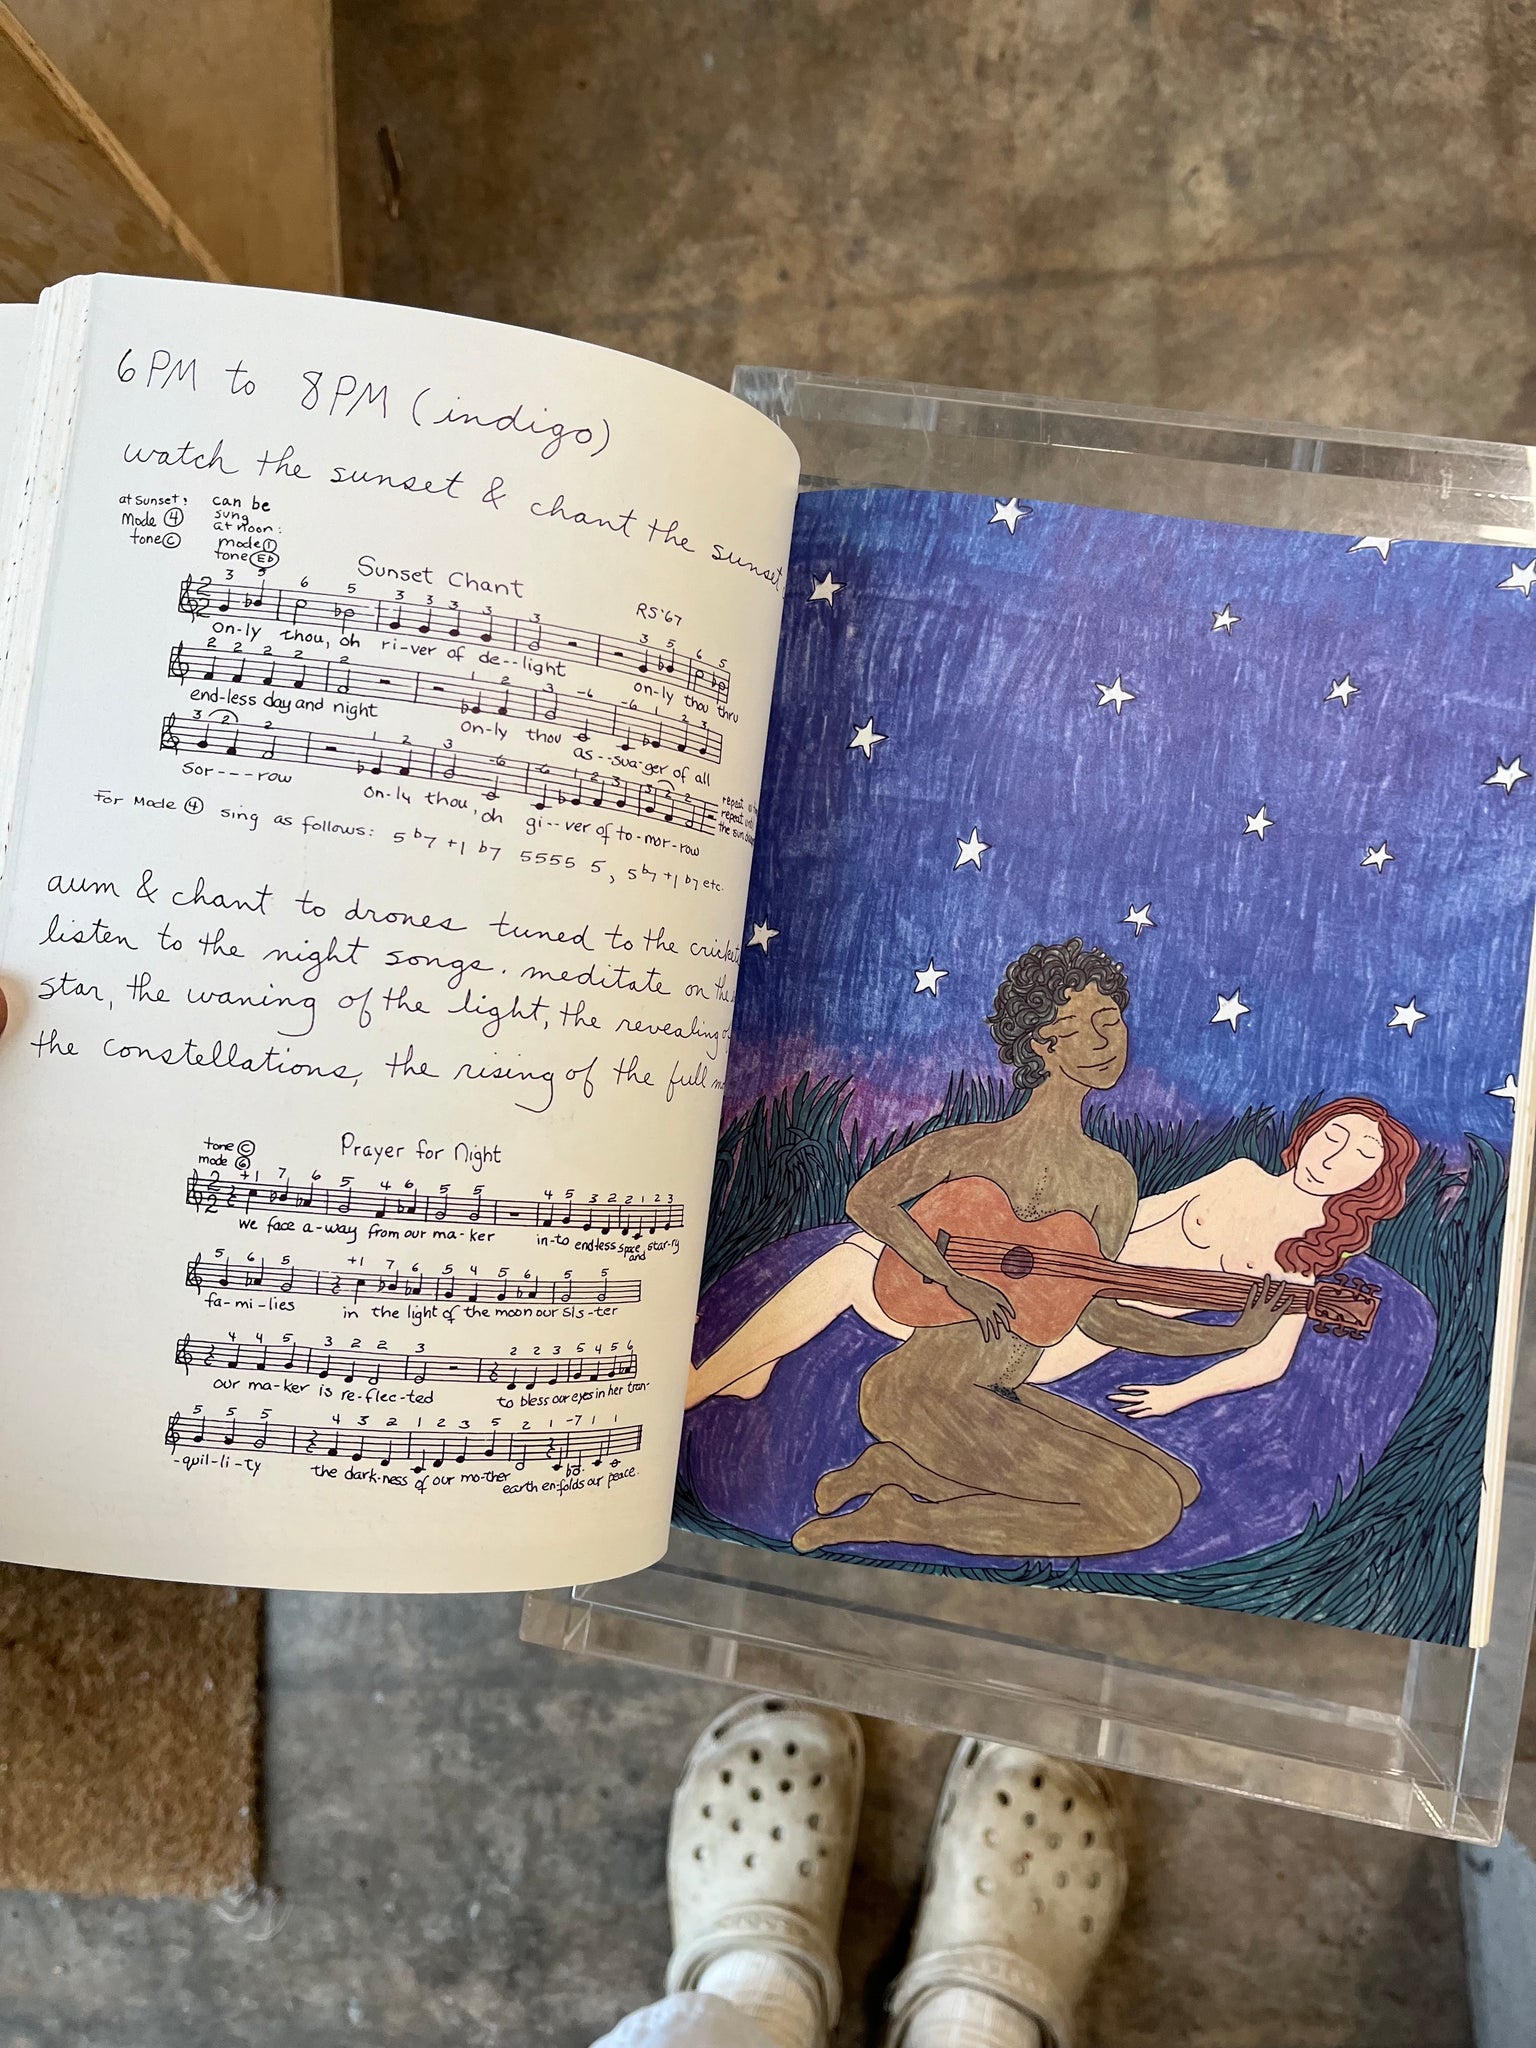 6 PM to 8 PM (indigo)
watch the sunset & chant the sunset
at sunset:
mode ④
tone Ⓒ
can be
sung
at noon:
mode ①
tone (E♭)
Sunset Chant
RS '67
3 5 6 5 3 3 3 3 3 3 5 6 5
on-ly thou, oh ri-ver of de--light on-ly thou thru
2 2 2 2 2 1 2 3 -6 -6 1 2 3
end-less day and night on-ly thou as--sua-ger of all
3 2 2 1 2 3 -6 -6 1 2 3 3 2 2
sor---row on-ly thou, oh gi--ver of to-mor-row
repeat
repeat
the sun
For Mode ④ sing as follows: 5 b7 +1 b7 5555 5, 5 b7 +1 b7 etc.
aum & chant to drones tuned to the
listen to the night songs. meditate on the
star, the waning of the light, the revealing of
the constellations, the rising of the full
tone Ⓒ
mode ⑥
Prayer for Night
+1 7 6 5 4 6 5 5 4 5 3 2 2 1 2 3
we face a-way from our ma-ker in-to endless space and star-ry
5 6 5 +1 7 6 5 4 5 6 5 5
fa-mi-lies in the light of the moon our sis-ter
4 4 5 3 2 2 3 2 2 3 5 4 5 6
our ma-ker is re-flec-ted to bless our eyes in her tran-
5 5 5 4 3 2 1 2 3 5 2 1 -7 1 1
-quil-li-ty the dark-ness of our mo-ther earth en-folds our peace.